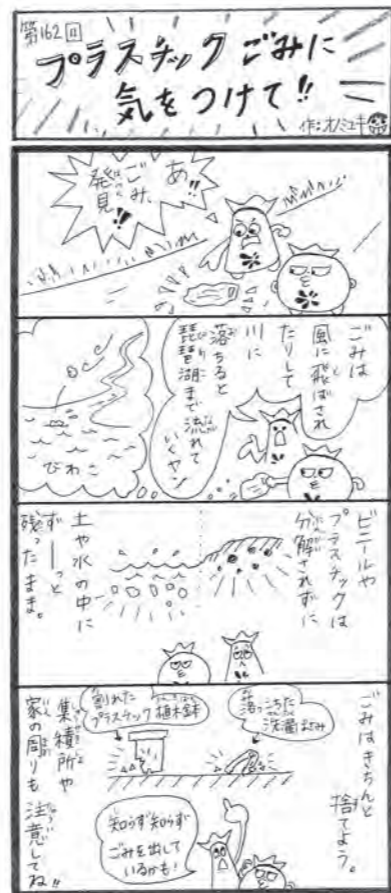 第162回
プラスチックごみに
気をつけて!!
作:オノミユキ
あ!!
ごみ、
発見!!
ごみは
風に飛ばされ
たりして
川に
落ちると
琵琶湖まで流れて
いくヤン!
びわこ
ビニールや
プラスチックは
分解されずに
土や水の中に
ず——っと
残ったまま。
ごみはきちんと
捨てよう。
落っこちた
洗濯ばさみ
割れた
プラスチック植木鉢
集積所や
家の周りも注意してね!!
知らず知らず
ごみを出して
いるかも!